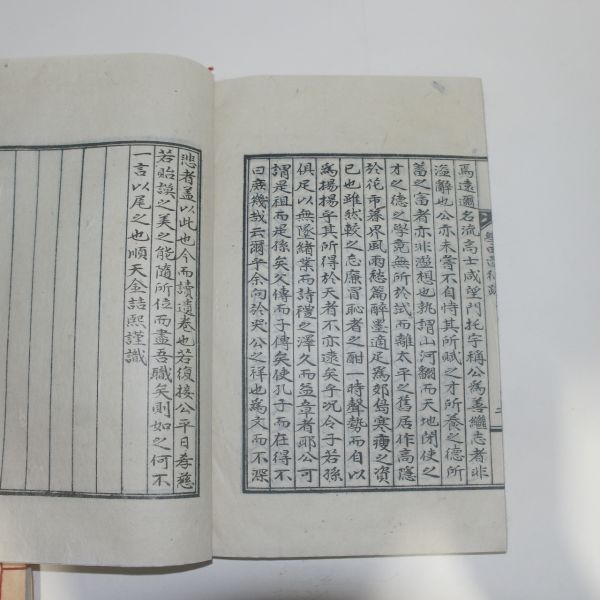 焉遠邇名流高士咸望門托字稱公爲善繼志者非
溢辭也公亦未嘗不自恃其所賦之才所養之德所
蓄之富者亦非濫想也孰謂山河飜而天地閉使之
才之德之學竟無所於試而離太平之舊居作高隱
於花市蔘界風雨愁篇醉墨適足爲郊島寒瘦之資
已也雖然較之忘廉冒恥者之酣一時聲勢而自以
爲揚揚乎其所得於天者不亦遠矣乎况令子若孫
俱足以無墜緖業而詩禮之澤久而益章者耶公可
謂是祖而是孫矣父傳而子傳矣使孔子而在得不
曰庶幾哉云爾乎余向於哭公之祥也爲文而不深
悲者盖以此也今而讀遺卷也若復接公平日孝慈
若貽謨之美之能隨所位而盡吾職矣則如之何不
一言以尾之也順天金喆熙謹識